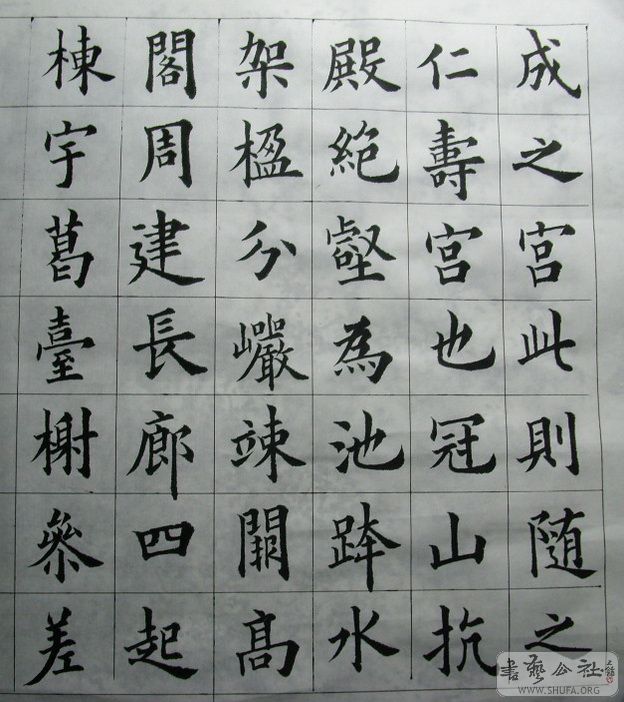 成之宮此則随之
仁壽宮也冠山抗
殿絶壑為池跨水
架楹分巖竦闕高
閣周建長廊四起
棟宇葛臺榭叅差
書藝公社
WWW.SHUFA.ORG